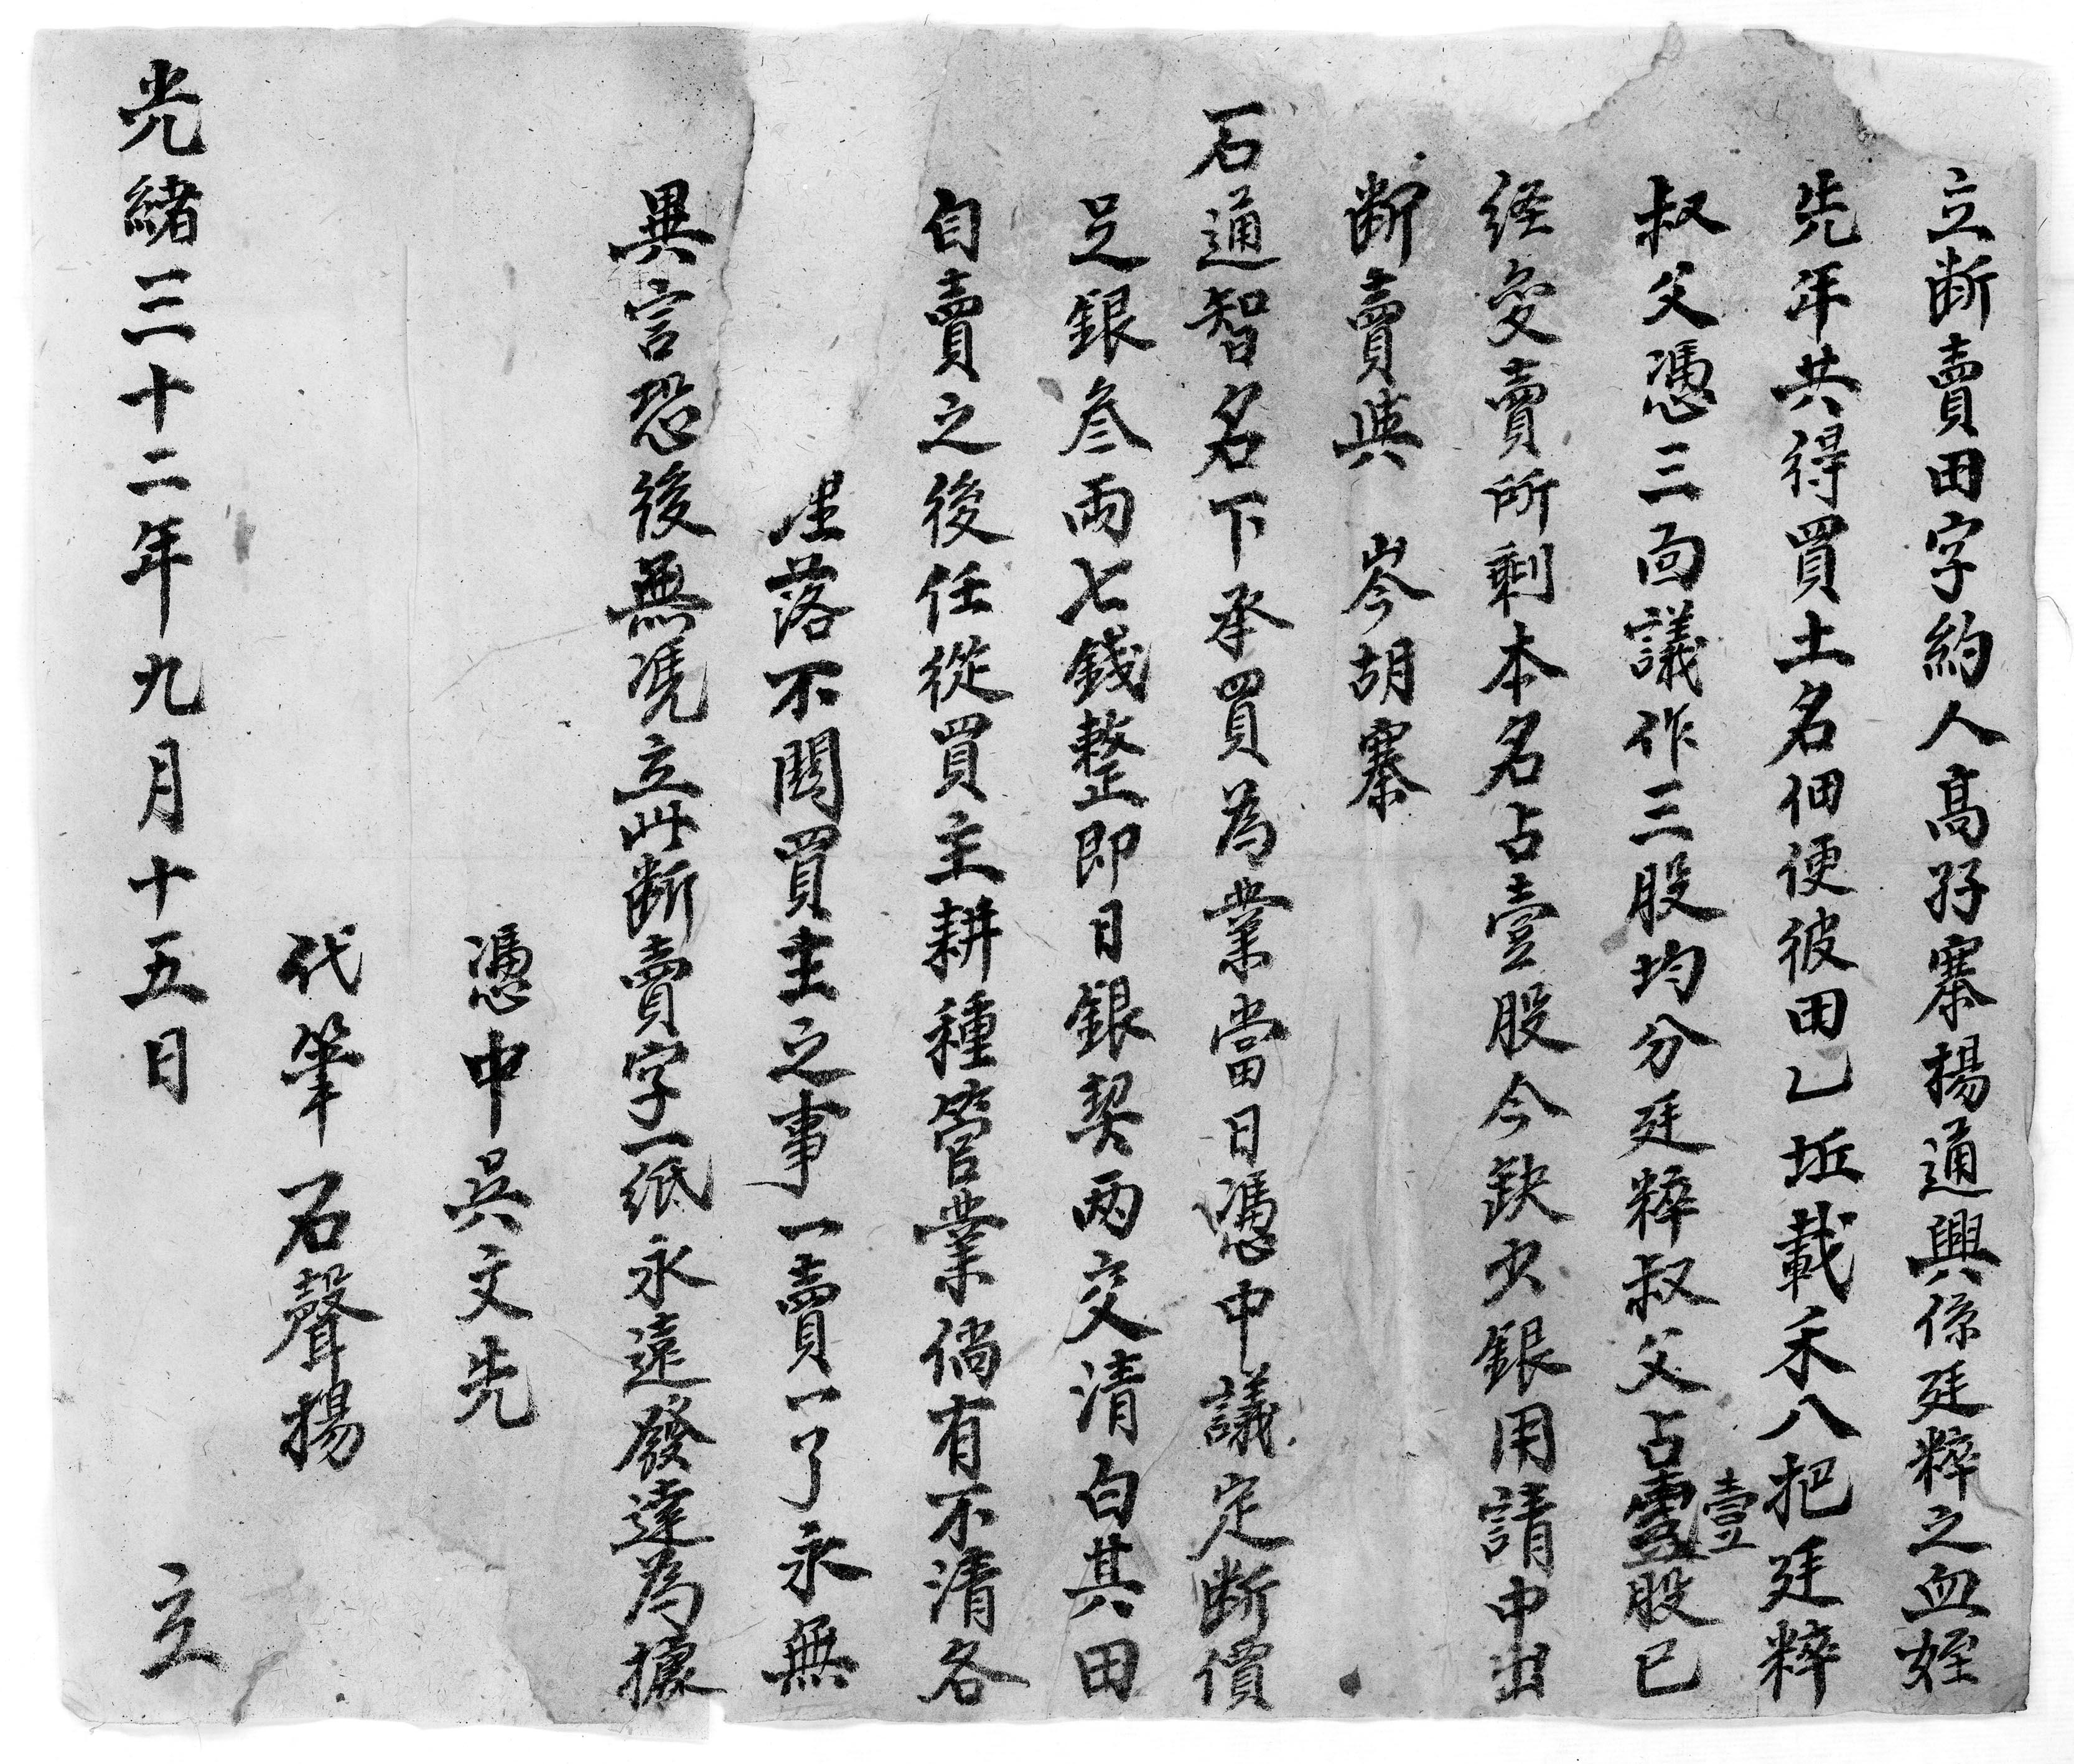 立断賣田字約人高孖寨楊通興係廷粹之血姪
先年共得買土名佃便彼田乚坵載禾八把廷粹
叔父憑三面議作三股均分廷粹叔父占壹股已
壹
経変賣所剩本名占壹股今鈌少銀用請中出
断賣與 岑胡寨
石通智名下承買為業當日憑中議定断價
足銀叁両七錢整即日銀契両交清白其田
自賣之後任從買主耕種管業倘有不清各
落不関買主之事一賣一了永無
異言恐後無凴立此断賣字一紙永遠發達為據
憑中吴文先
代筆石聲揚
光緒三十二年九月十五日 立